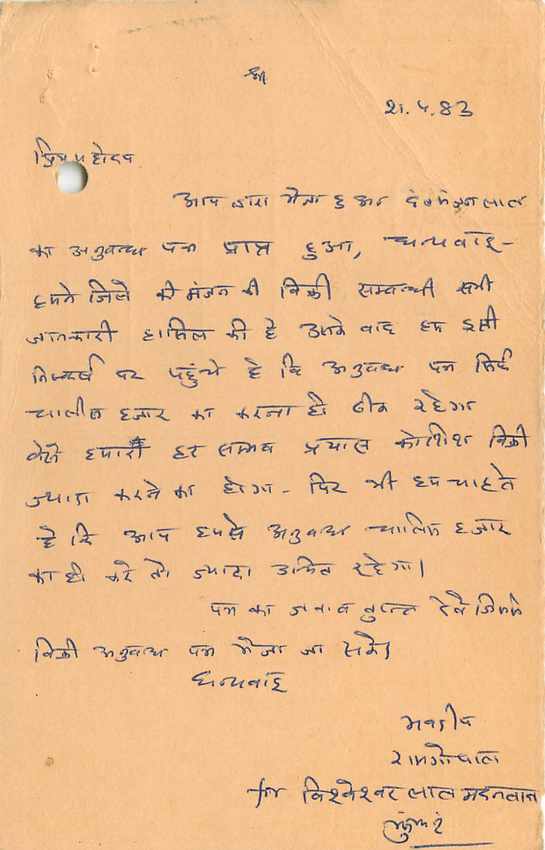 श्री
21.4.83
प्रिय महोदय
आप द्वारा भेजा हुआ दंत मंजन लाल
का अनुबन्ध पत्र प्राप्त हुआ, धन्यवाद -
हमने जिले की मंजन की बिक्री सम्बन्धी सभी
जानकारी हासिल की है उसके बाद हम इसी
निष्कर्ष पर पहुंचे है कि अनुबन्ध पत्र सिर्फ
चालीस हजार का करना ही ठीक रहेगा
वैसे हमारी हर सम्भव प्रयास कोशिश बिक्री
ज्यादा करने का होगा - फिर भी हम चाहते
है कि आप हमसे अनुबन्ध चालिस हजार
का ही करे तो ज्यादा उचित रहेगा।
पत्र का जवाब तुरन्त देवे जिससे
बिक्री अनुबन्ध पत्र भेजा जा सके।
धन्यवाद
भवदीय
रामगोपाल
for विश्वेश्वर लाल मदनलाल